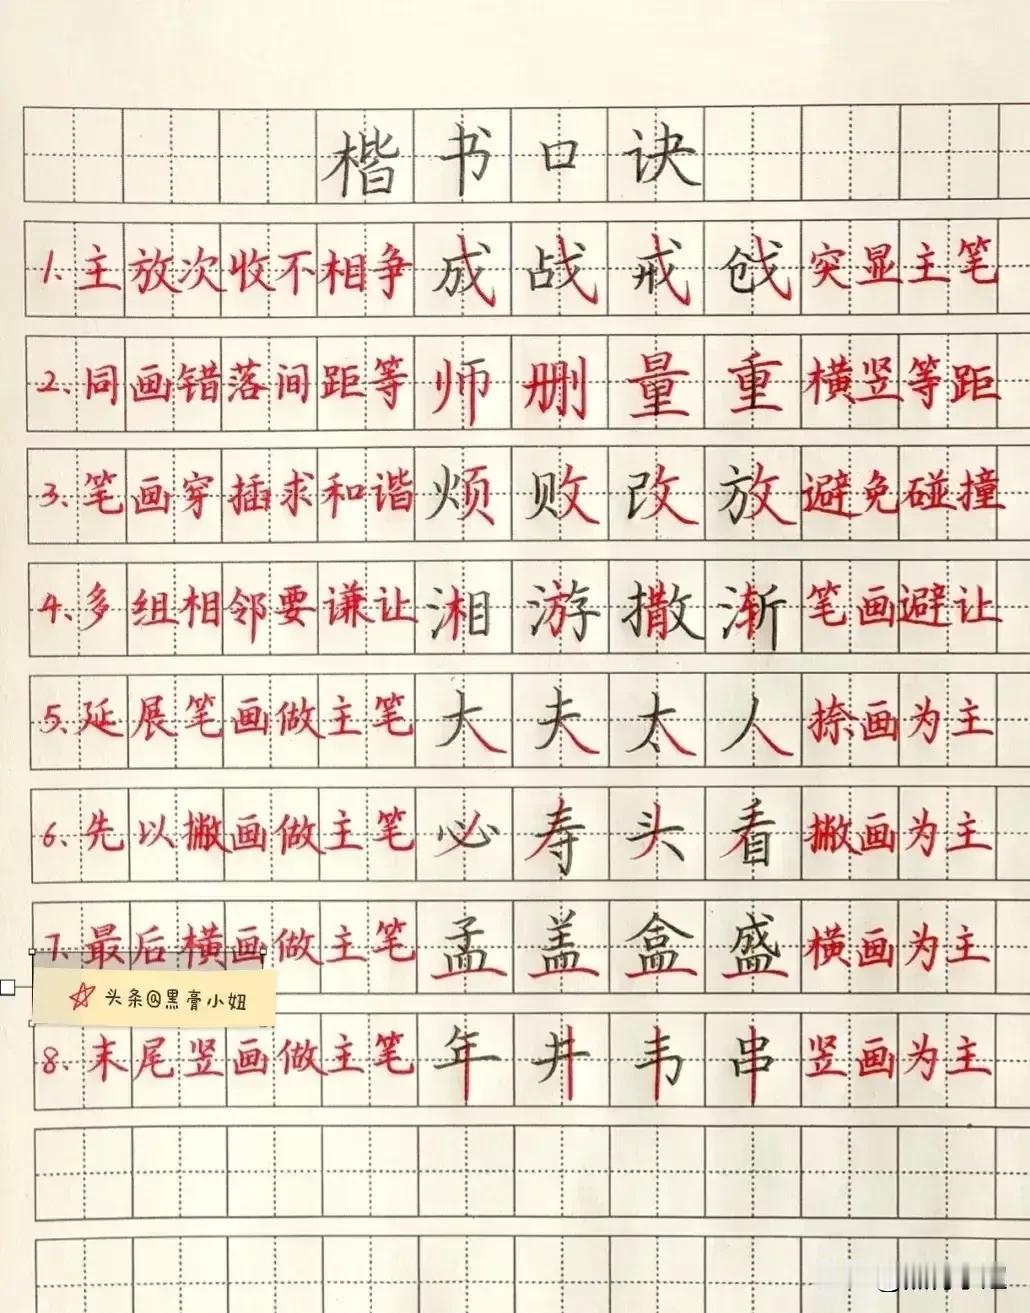 楷书口诀
1.主放次收不相争 成 战 戒 戗 突显主笔
2.同画错落间距等 师 删 量 重 横竖等距
3.笔画穿插求和谐 烦 败 改 放 避免碰撞
4.多组相邻要谦让 湘 游 撒 渐 笔画避让
5.延展笔画做主笔 大 夫 太 人 捺画为主
6.先以撇画做主笔 必 寿 头 看 撇画为主
7.最后横画做主笔 孟 盖 盒 盛 横画为主
头条@黑膏小妞
8.末尾竖画做主笔 年 井 韦 串 竖画为主